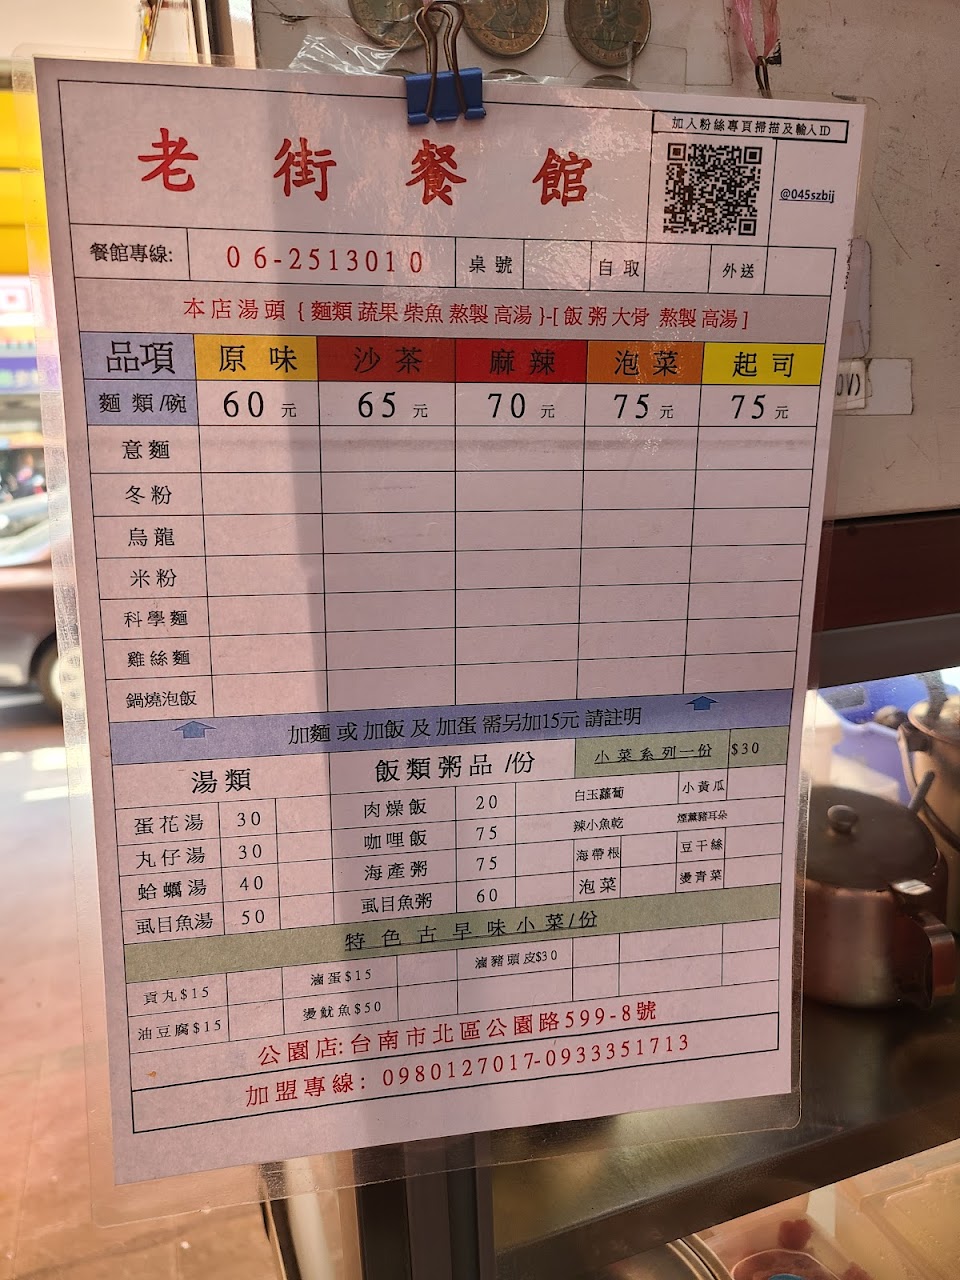 加入粉絲專頁掃描及輸入ID
老街餐館
@045szbij
餐館專線: 06-2513010 桌號 自取 外送
本店湯頭 {麵類 蔬果 柴魚 熬製 高湯}-[飯 粥 大骨 熬製 高湯]
品項 原味 沙茶 麻辣 泡菜 起司
麵類/碗 60元 65元 70元 75元 75元
意麵
冬粉
烏龍
米粉
科學麵
雞絲麵
鍋燒泡飯
加麵 或 加飯 及 加蛋 需另加15元 請註明
湯類 飯類粥品/份 小菜系列一份 $30
蛋花湯 30 肉燥飯 20 白玉蘿蔔 小黃瓜
丸仔湯 30 咖哩飯 75 辣小魚乾 煙薰豬耳朵
蛤蠣湯 40 海產粥 75 海帶根 豆干絲
虱目魚湯 50 虱目魚粥 60 泡菜 燙青菜
特色古早味小菜/份
貢丸$15 滷蛋$15 滷豬頭皮$30
油豆腐$15 燙魷魚$50
公園店:台南市北區公園路599-8號
加盟專線: 0980127017-0933351713